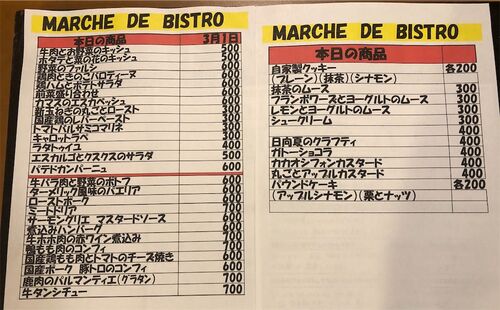 MARCHE DE BISTRO
本日の商品 3月1日
牛肉とお野菜のキッシュ 500
ホタテと菜の花のキッシュ 500
野菜のファルシ 500
鶏肉ときのこバロティーヌ 600
鶏ハムとポテトサラダ 600
前菜盛り合わせ 600
カマスのエスカベッシュ 300
新玉ねぎの丸ごとロースト 300
国産鶏のレバーペースト 300
トマトバルサミコマリネ 300
キャロットラペ 300
ラタトゥイユ 400
エスカルゴとクスクスのサラダ 500
パテドカンパーニュ 600
牛バラ肉と野菜のポトフ 600
ターメリック風味のパエリア 600
ローストポーク 600
ミートドリア 600
サーモングリエ マスタードソース 600
煮込みハンバーグ 600
牛ホホ肉の赤ワイン煮込み 600
鴨もも肉のコンフィ 700
国産鶏もも肉とトマトのチーズ焼き 600
国産ポーク 豚トロのコンフィ 600
鹿肉のパルマンティエ(グラタン) 700
牛タンシチュー 700
MARCHE DE BISTRO
本日の商品
自家製クッキー 各200
(プレーン)(抹茶)(シナモン)
抹茶のムース 300
フランボワーズとヨーグルトのムース 300
レモンとヨーグルトのムース 300
シュークリーム 300
400
日向夏のクラフティ 400
ガトーショコラ 400
カカオシフォンカスタード 400
丸ごとアップルカスタード 400
パウンドケーキ 各200
(アップルシナモン)(栗とナッツ)